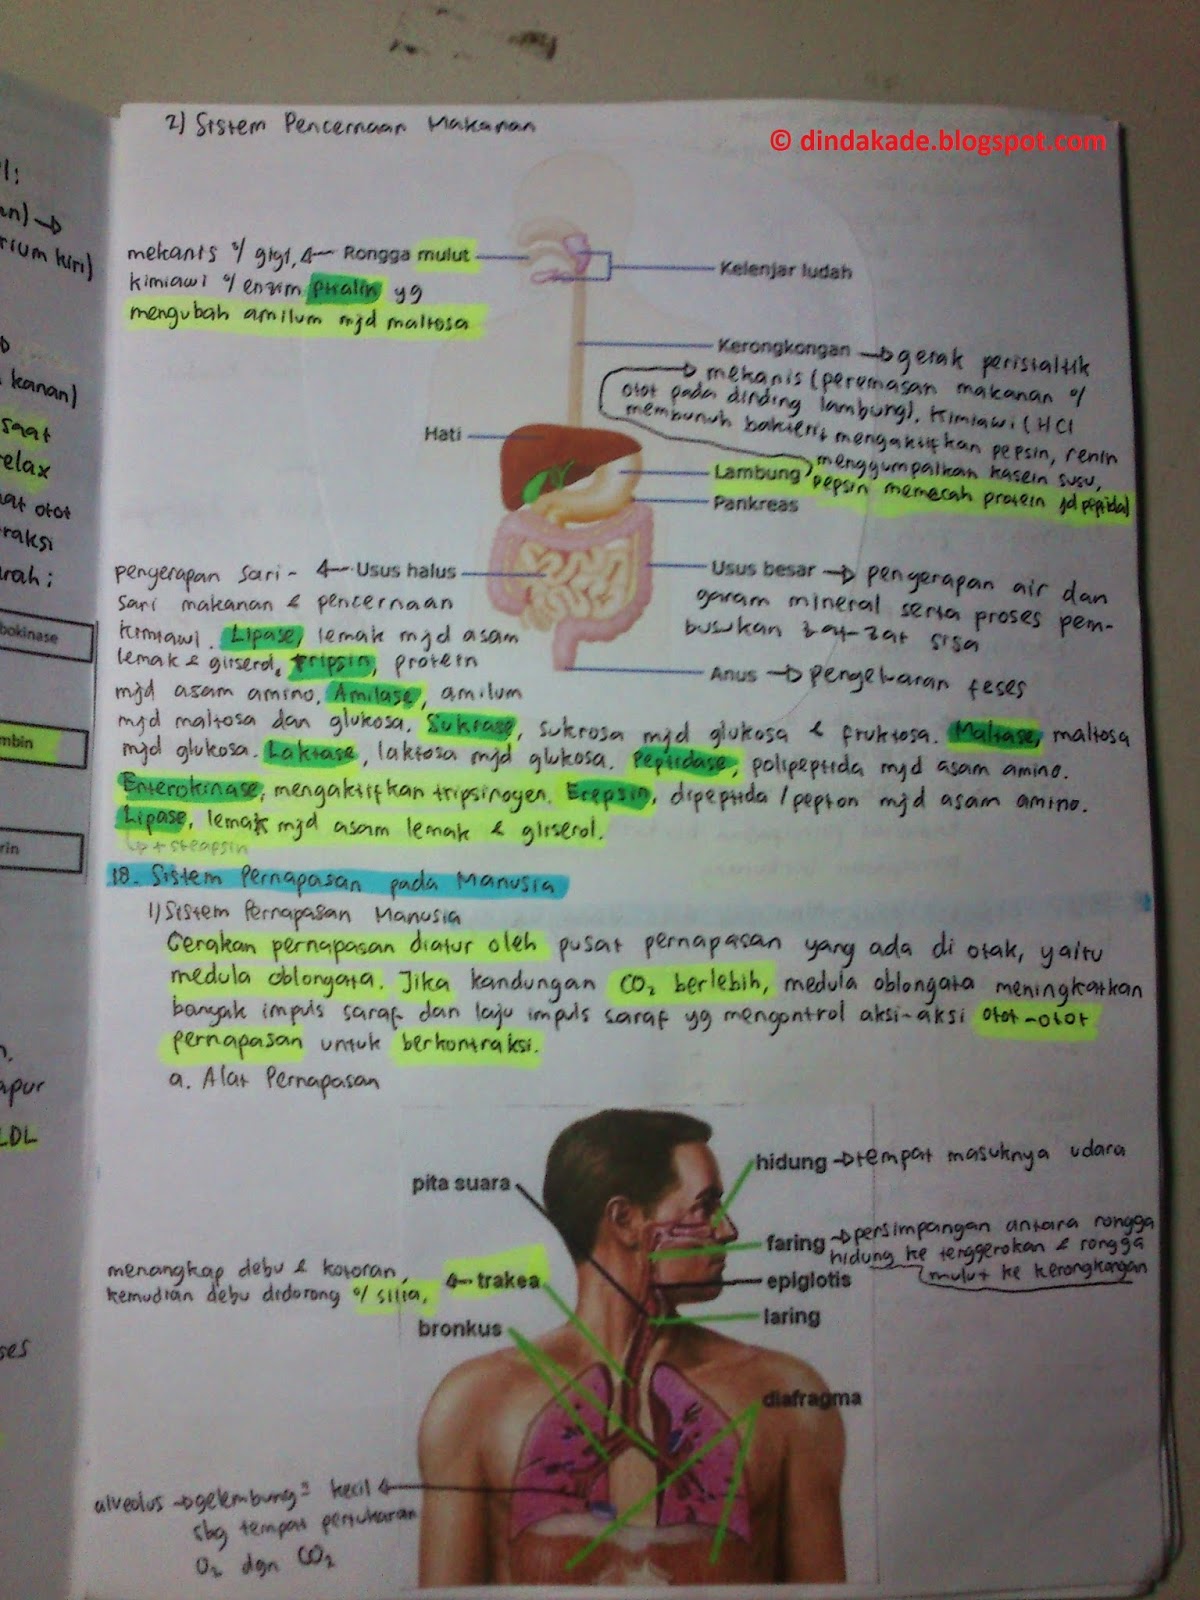 2) Sistem Pencernaan Makanan
© dindakade.blogspot.com
mekanis o/ gigi, ← Rongga mulut
kimiawi o/ enzim ptialin yg
mengubah amilum mjd maltosa
Kelenjar ludah
Kerongkongan → gerak peristaltik
mekanis (peremasan makanan o/
otot pada dinding lambung). Kimiawi (HCl
membunuh bakteri, mengaktifkan pepsin, renin
menggumpalkan kasein susu,
pepsin memecah protein jd peptida)
Hati
Lambung
Pankreas
penyerapan sari- ← Usus halus
sari makanan & pencernaan
kimiawi. Lipase, lemak mjd asam
lemak & gliserol, tripsin, protein
mjd asam amino. Amilase, amilum
mjd maltosa dan glukosa. Sukrase, sukrosa mjd glukosa & fruktosa. Maltase, maltosa
mjd glukosa. Laktase, laktosa mjd glukosa. Peptidase, polipeptida mjd asam amino.
Enterokinase, mengaktifkan tripsinogen. Erepsin, dipeptida/pepton mjd asam amino.
Lipase, lemak mjd asam lemak & gliserol.
steapsin
Usus besar → pengerapan air dan
garam mineral serta proses pem-
busukan zat-zat sisa
Anus → pengeluaran feses
18. Sistem Pernapasan pada Manusia
1) Sistem Pernapasan Manusia
Gerakan pernapasan diatur oleh pusat pernapasan yang ada di otak, yaitu
medula oblongata. Jika kandungan CO₂ berlebih, medula oblongata meningkatkan
banyak impuls saraf dan laju impuls saraf yg mengontrol aksi-aksi otot-otot
pernapasan untuk berkontraksi.
a. Alat Pernapasan
hidung → tempat masuknya udara
pita suara
faring → persimpangan antara rongga
hidung ke tenggorokan & rongga
mulut ke kerongkongan
menangkap debu & kotoran, ← trakea
kemudian debu didorong o/ silia.
epiglotis
laring
bronkus
diafragma
alveolus → gelembung² kecil
sbg tempat pertukaran
O₂ dgn CO₂
kanan)
saat
relax
otot
bokinase
mbin
rin
LDL